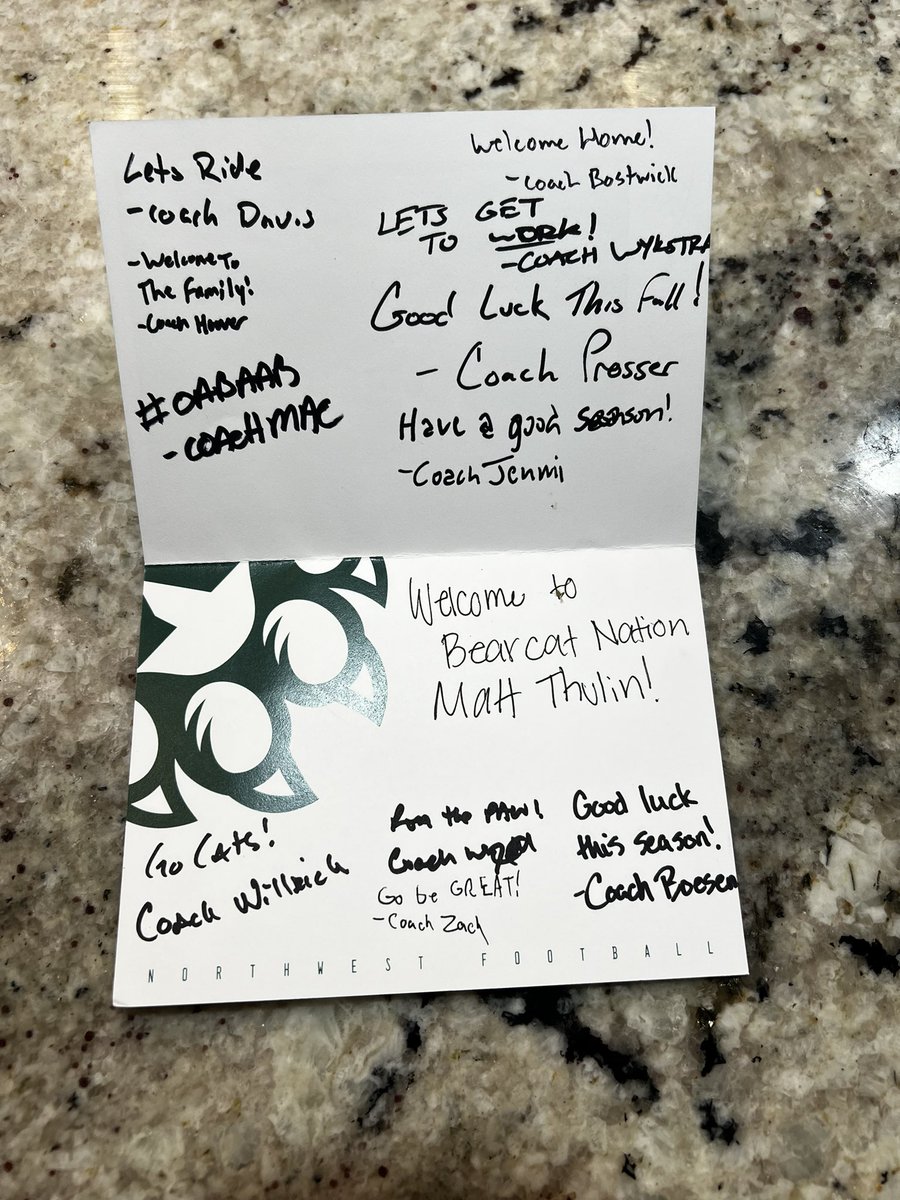 Lets Ride
-Coach Davis
-Welcome To
The Family!
-Coach Hoover
#OABAAB
-COACH MAC
Welcome Home!
-Coach Bostwick
LETS GET
TO WORK!
-COACH WYKSTRA
Good Luck This Fall!
- Coach Prosser
Have a good season!
-Coach Jenmi
Welcome to
Bearcat Nation
Matt Thulin!
Go Cats!
Coach Willrich
the PAW!
Coach
Go be GREAT!
-Coach Zach
Good luck
this season!
-Coach Boesen
NORTHWEST FOOTBALL